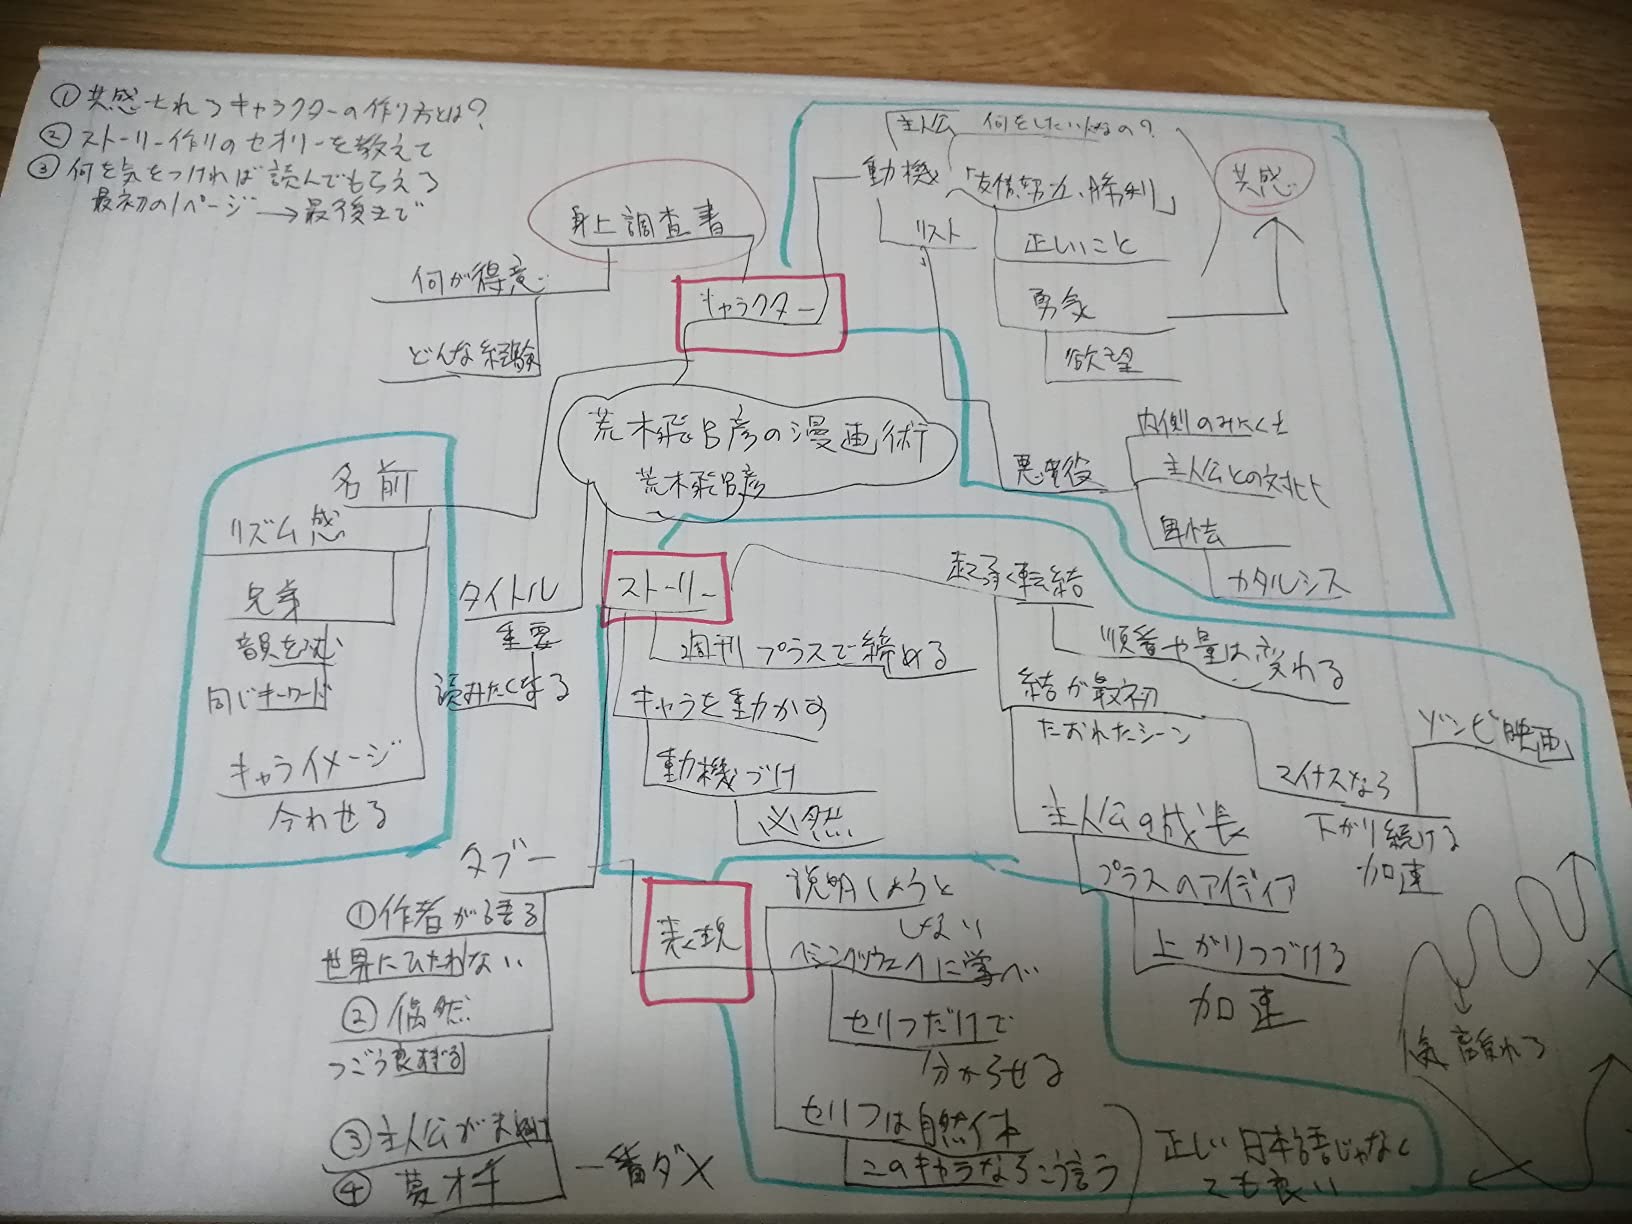 ①共感されるキャラクターの作り方とは?
②ストーリー作りのセオリーを教えて
③何を気をつければ読んでもらえる
最初の1ページ→最後まで
身上調査書
何が得意
どんな経験
キャラクター
主人公 何をしたい人なの?
動機
「友情、努力、勝利」
共感
リスト
正しいこと
勇気
欲望
悪役
内側のみにくさ
主人公との対比
卑怯
カタルシス
荒木飛呂彦の漫画術
荒木飛呂彦
名前
リズム感
兄弟
韻を
同じキーワード
キャライメージ
合わせる
タイトル
重要
読みたくなる
ストーリー
起承転結
順番や量は変わる
週刊 プラスで締める
キャラを動かす
動機づけ
必然
結が最初
たおれたシーン
ゾンビ映画
マイナスなら
下がり続ける
加速
主人公の成長
プラスのアイディア
上がりつづける
加速
タブー
①作者が語る
世界にひたれない
②偶然
つごう良すぎる
③主人公が
④夢オチ 一番ダメ
表現
説明しようと
しない
ヘミングウェイに学べ
セリフだけで
分からせる
セリフは自然体
このキャラならこう言う
正しい日本語じゃなく
ても良い
離れる